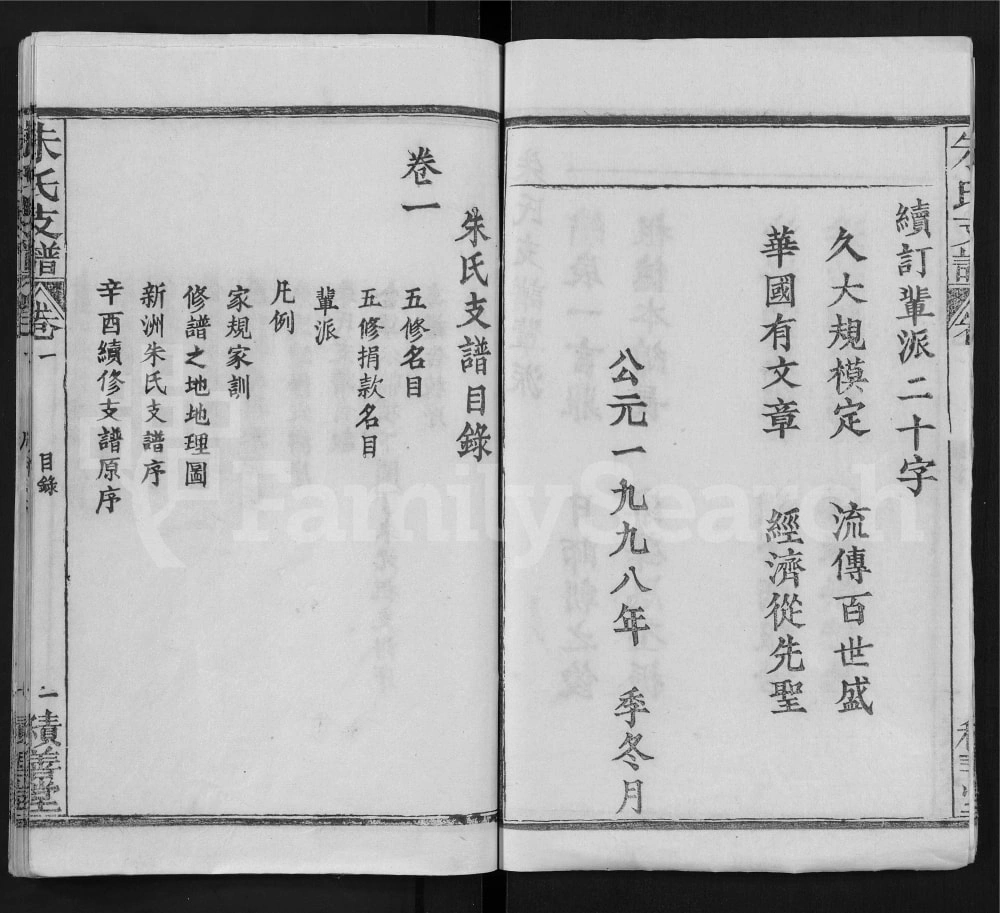 續訂輩派二十字
久大規模定 流傳百世盛
華國有文章 經濟從先聖
公元一九九八年 季冬月
朱氏支譜目錄
卷一
五修名目
五修捐款名目
輩派
凡例
家規家訓
修譜之地地理圖
新洲朱氏支譜序
辛酉續修支譜原序
朱氏支譜 卷一 目錄 一 積善堂
FamilySearch